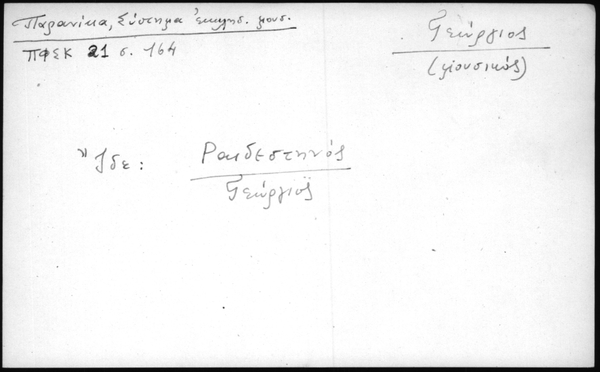 Παρανίκα, Σύστημα ἐκκλησ. μουσ.
ΠΦΣΚ 21 σ. 164
Γεώργιος
(μουσικός)
Ἴδε:
Ραιδεστηνός
Γεώργιος